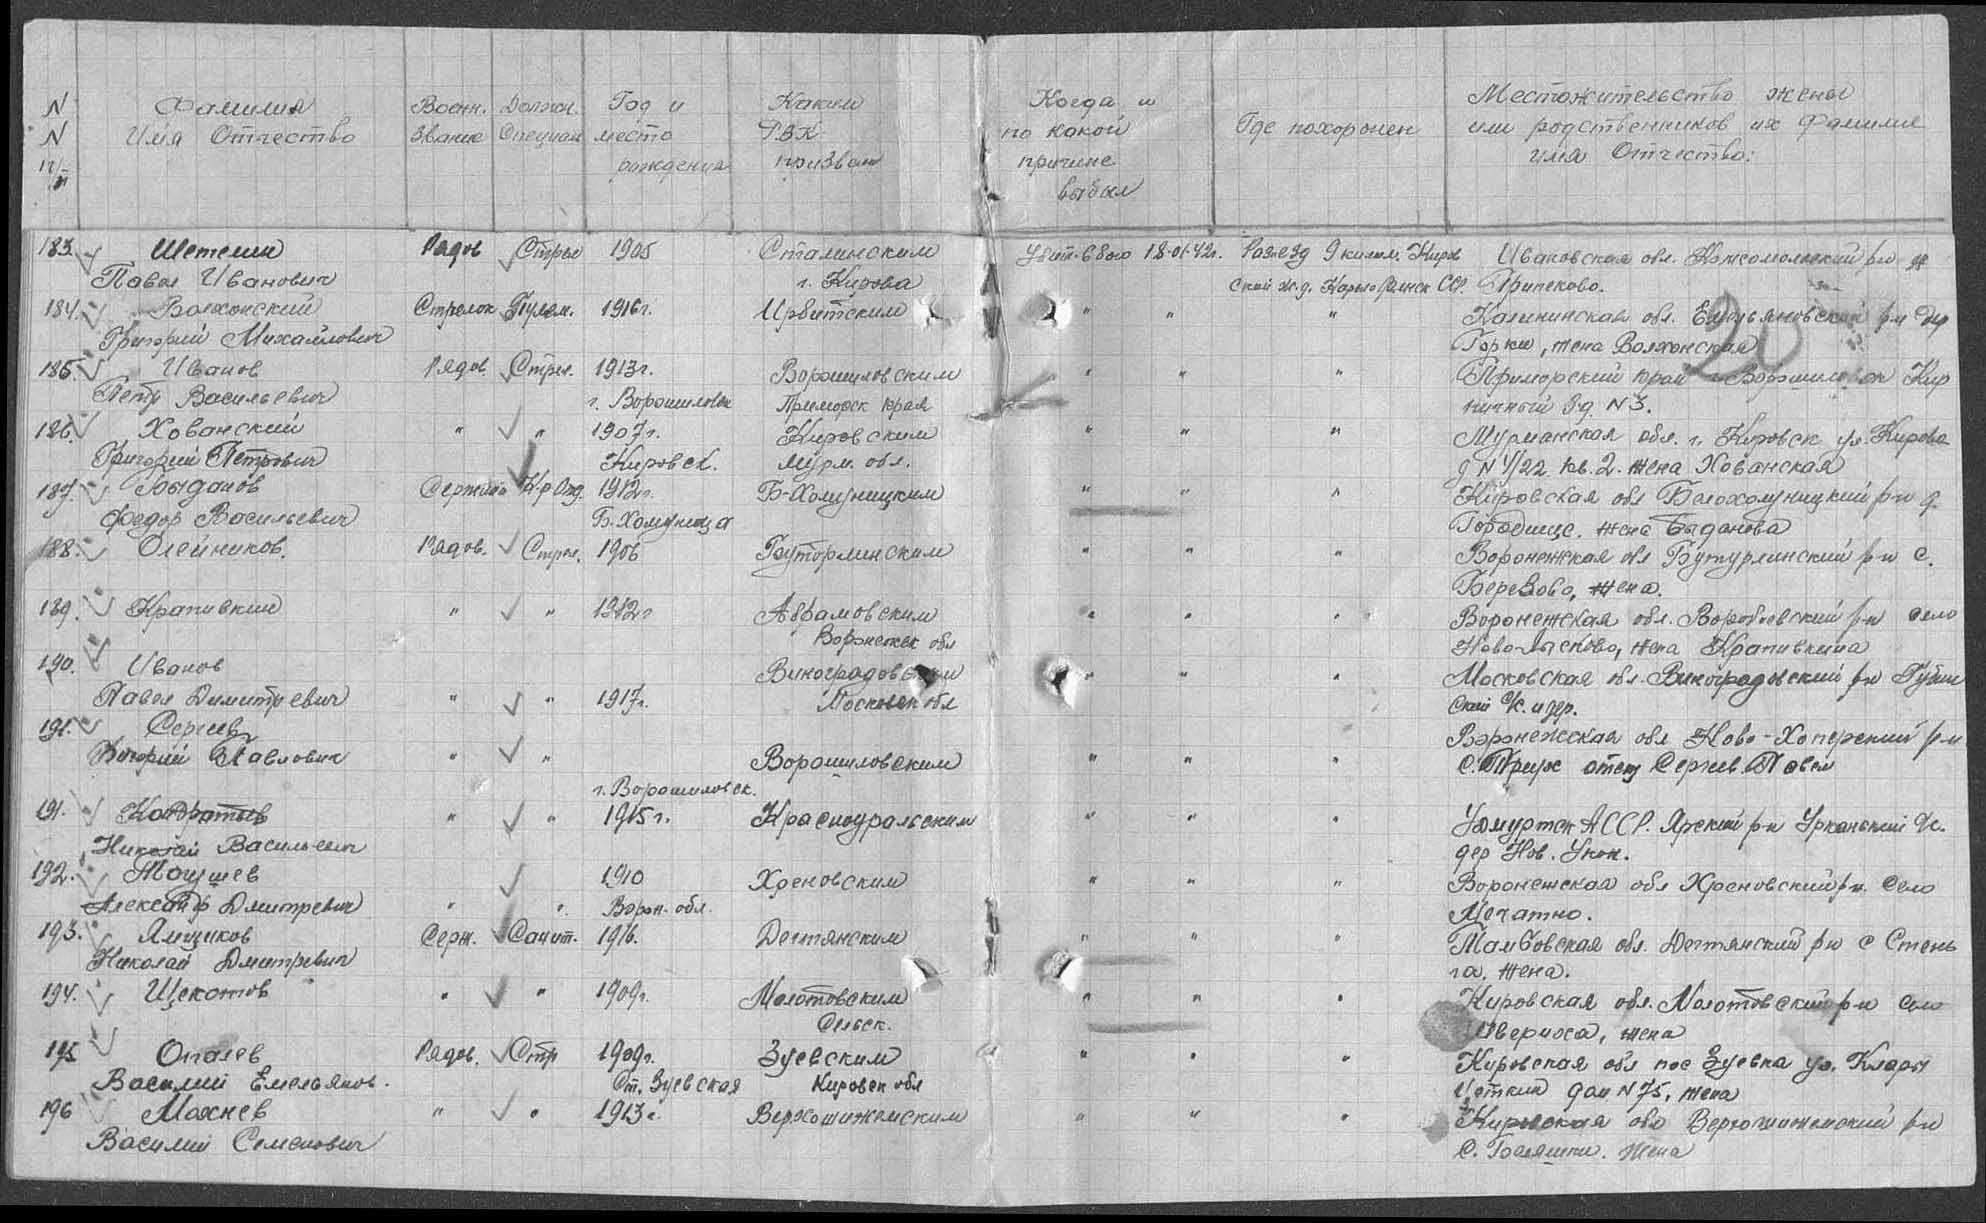 N
N
п/п
Фамилия
Имя Отчество
Воен.
Звание
Должн.
Специал
Год и
место
рождения
Каким
РВК
призван
Когда и
по какой
причине
выбыл
Где похоронен
Местожительство жены
или родственников их Фамилие
имя Отчество:
183. Шетелин Рядов Стрел 1905 Сталинским Убит. в бою 18-01-42г. Разъезд 9 килом. Киров Ивановская обл. Комсомольский р-н д
Павел Иванович г. Кирова ской ж.д. Карело Финск ССР. Припеково.
184. Волхонский Стрелок Пулем. 1916г. Ирбитским " " " Калининская обл. Емельяновский р-н дер
Григорий Михайлович Горки, жена Волхонская
185. Иванов Рядов. Стрел. 1913г. Ворошиловским " " " Приморский край г. Ворошиловск Кир
Петр Васильевич г. Ворошиловск Приморск края пичный З-д N 3.
186. Хованский " " 1907г. Кировским " " " Мурманская обл. г. Кировск ул. Кирова
Григорий Петрович Кировск. Мурм. обл. д N 4/22 кв. 2. жена Хованская
187. Быданов Сержант К-р Отд. 1912г. Б-Холуницким " " " Кировская обл Белохолуницкий р-н д.
Федор Васильевич Б. Холуница Городище. жена Быданова
188. Олейников. Рядов. Стрел. 1906 Бутурлинским " " " Воронежская обл Бутурлинский р-н с.
Березово, жена.
189. Крапивкин " " 1912г Абрамовским " " " Воронежская обл. Воробьевский р-н село
Воронежск обл Ново-Лысково, жена Крапивкина
190. Иванов Виноградовским " " " Московская обл. Виноградовский р-н Губин
Павел Димитриевич " " 1917г. Московск обл ский Ж. и дер.
191. Сергеев Воронежская обл Ново-Хоперский р-н
Григорий Павлович " " Ворошиловским " " " с. отец Сергеев Павел
г. Ворошиловск.
191. Кондратьев " " 1915г. Красноуральским " " " Удмуртск АССР. Ярский р-н с/с.
Николай Васильевич дер Нов. Укан.
192. Могушев 1910 Хреновским " " " Воронежская обл Хреновский р-н. село
Александр Дмитревич " " Ворон. обл. Мечатно.
193. Ямщиков Серж. Санит. 1916. Дегтянским " " " Тамбовская обл. Дегтянский р-н с Стень
Николай Дмитревич га, жена.
194. Щекотов " " 1909г. Молотовским " " " Кировская обл. Молотовский р-н село
Сельск. жена
195 Опалев Рядов. Стр 1909г. Зуевским " " " Кировская обл пос Зуевка ул. Клары
Василий Емельянов. Ст. Зуевская Кировск обл Цеткин дом N 75, жена
196 Махнев " " 1913г. Верхошижемским " " " Кировская обл Верхошижемский р-н
Василий Семенович жена
20